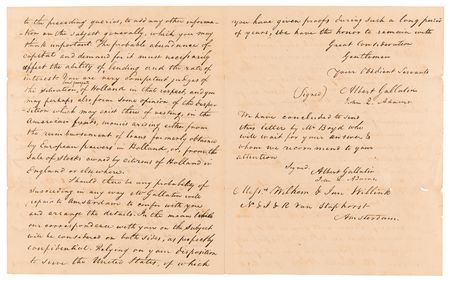 to the preceding queries, to add any other informa-
tion on the subject generally, which you may
think important. The probable abundance of
capital and demand for it must necessarily
affect the ability of lending and the rate of
interest. You are very competent judges of
the situation, of Holland in that respect, and you
may perhaps also form some opinion of the dispo-
sition which may exist there of vesting, on the
American funds, monies arising either from
the reimbursement of loans formerly obtained
by European powers in Holland, or, from the
sale of stocks owned by citizens of Holland in
England or elsewhere.
Should there be any probability of
succeeding in any way Mr Gallatin will
repair to Amsterdam to confer with you
and arrange the details. In the mean while
our correspondence with you on the subject
will be considered on both sides, as perfectly
confidential. Relying on your disposition
to serve the United States, of which
you have given proofs during such a long period
of years, We have the honor to remain with
Great Consideration
Gentlemen
Your Obedient Servants
(Signed) Albert Gallatin
James A. Bayard
We have concluded to send
this letter by Mr Boyd who
will wait for your answer &
whom we recommend to your
attention
Signed Albert Gallatin
James A. Bayard
Messrs Wilhem & Jan Willink
N & J & R Van Staphorst
Amsterdam.